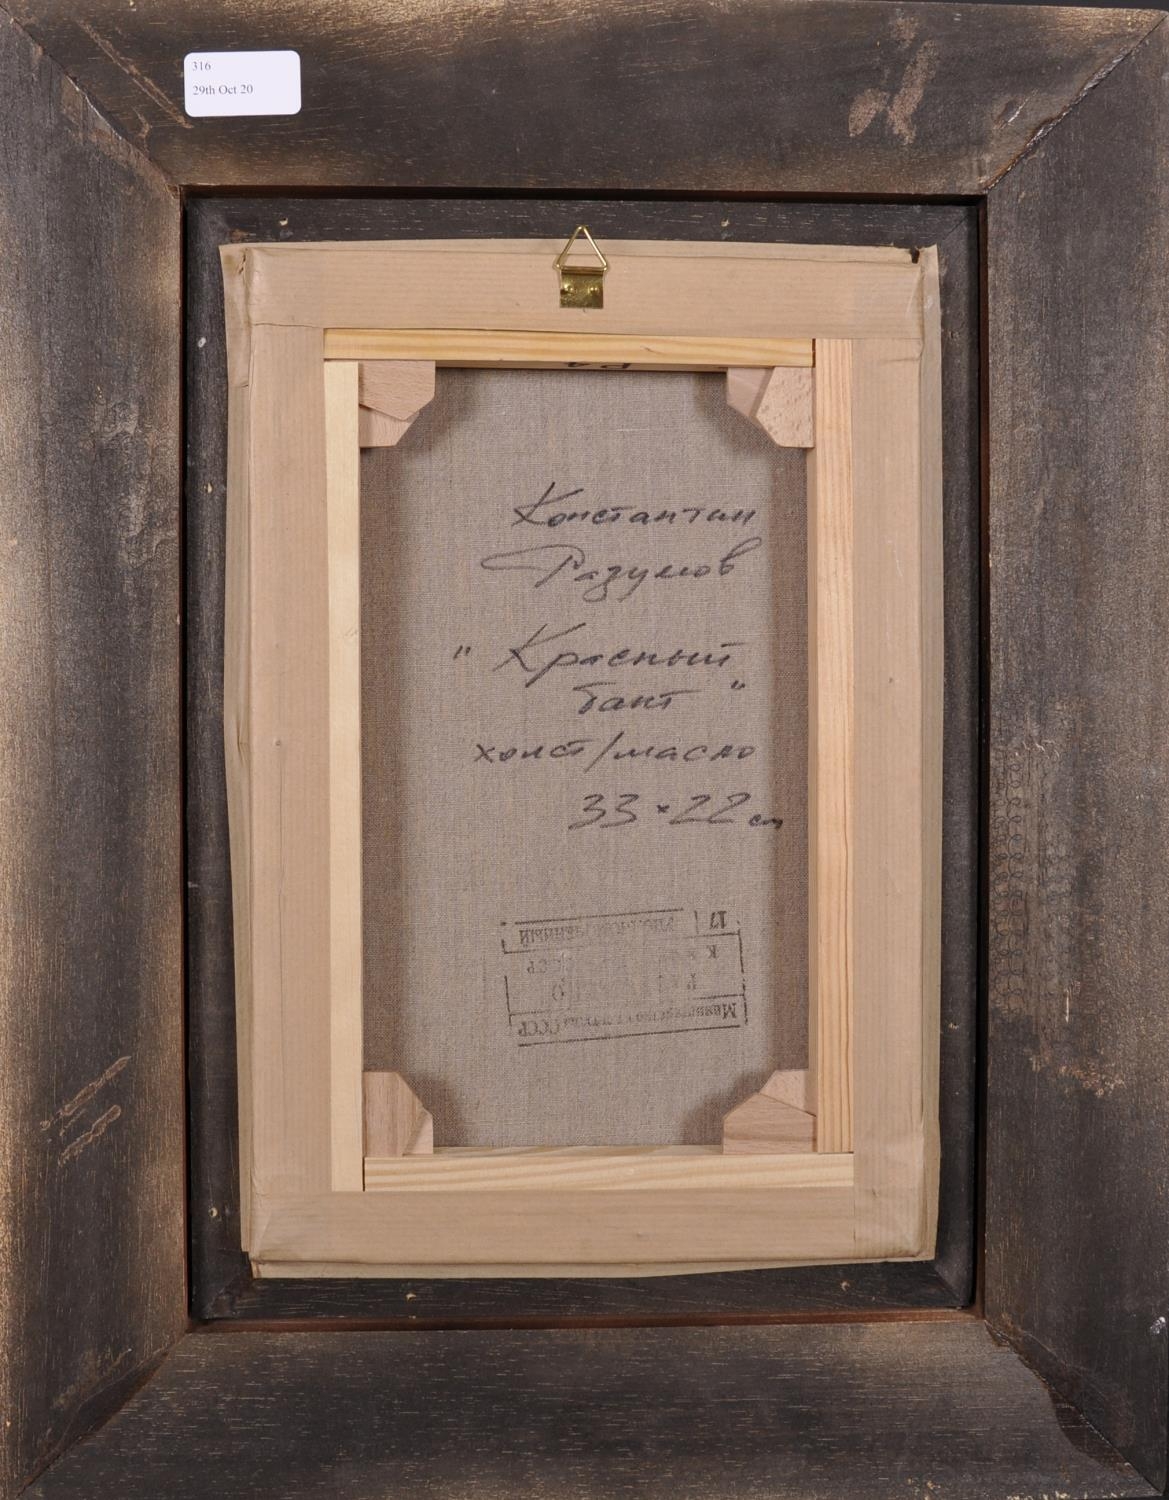 316
29th Oct 20
Константин
Разумов
"Красный
бант"
холст/масло
33×22 см
17
К СССР
СССР